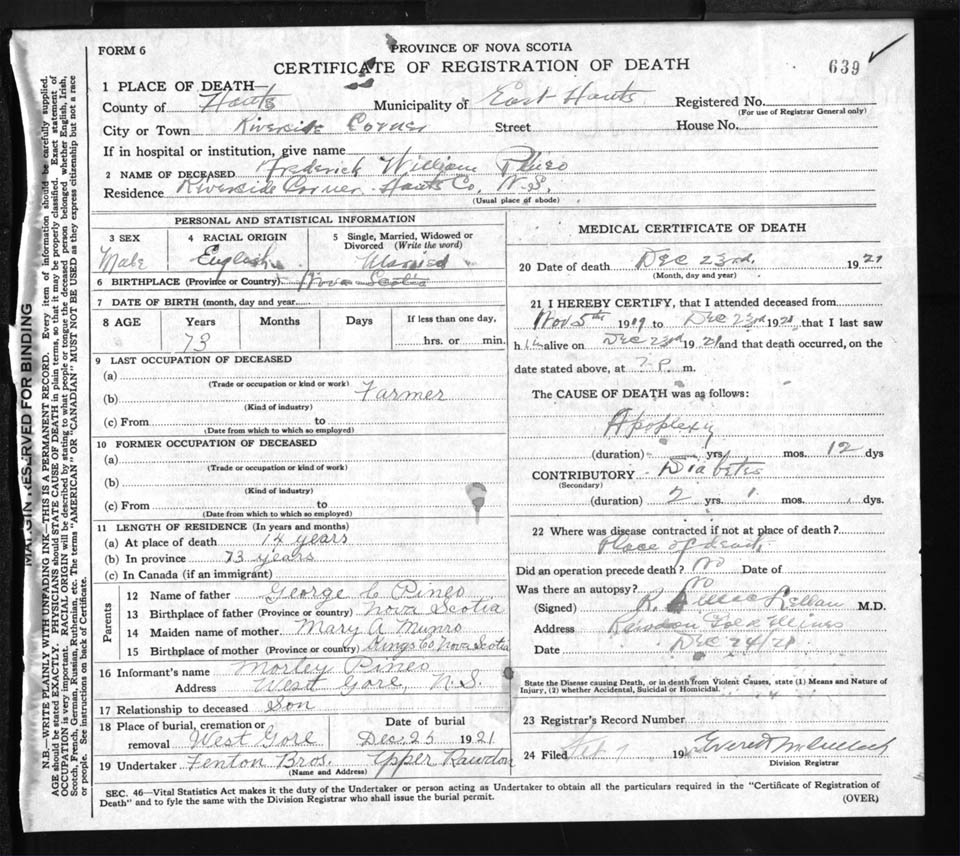 FORM 6
PROVINCE OF NOVA SCOTIA
CERTIFICATE OF REGISTRATION OF DEATH
639
1 PLACE OF DEATH—
County of Hants Municipality of East Hants Registered No.
(For use of Registrar General only)
City or Town Riverside Corner Street House No.
If in hospital or institution, give name
2 NAME OF DECEASED Frederick William Pineo
Residence Riverside Corner Hants Co. N.S.
(Usual place of abode)
PERSONAL AND STATISTICAL INFORMATION
3 SEX 4 RACIAL ORIGIN 5 Single, Married, Widowed or Divorced (Write the word)
Male English Married
6 BIRTHPLACE (Province or Country) Nova Scotia
7 DATE OF BIRTH (month, day and year)
8 AGE Years Months Days If less than one day,
73 hrs. or min.
9 LAST OCCUPATION OF DECEASED
(a)
(Trade or occupation or kind or work)
(b) Farmer
(Kind of industry)
(c) From to
(Date from which to which so employed)
10 FORMER OCCUPATION OF DECEASED
(a)
(Trade or occupation or kind of work)
(b)
(Kind of industry)
(c) From to
(Date from which to which so employed)
11 LENGTH OF RESIDENCE (In years and months)
(a) At place of death 14 years
(b) In province 73 years
(c) In Canada (if an immigrant)
Parents
12 Name of father George C Pineo
13 Birthplace of father (Province or country) Nova Scotia
14 Maiden name of mother Mary A Munro
15 Birthplace of mother (Province or country) Kings Co Nova Scotia
16 Informant's name Morley Pineo
Address West Gore, N.S.
17 Relationship to deceased Son
18 Place of burial, cremation or Date of burial
removal West Gore Dec. 25 1921
19 Undertaker Fenton Bros. Upper Rawdon
(Name and Address)
MEDICAL CERTIFICATE OF DEATH
20 Date of death Dec 23rd, 1921
(Month, day and year)
21 I HEREBY CERTIFY, that I attended deceased from
Nov 5th 1919 to Dec 23rd 1921, that I last saw
him alive on Dec 23rd 1921 and that death occurred, on the
date stated above, at P. m.
The CAUSE OF DEATH was as follows:
Apoplexy
(duration) yrs. mos. 12 dys
CONTRIBUTORY Diabetes
(Secondary)
(duration) 2 yrs. 1 mos. dys.
22 Where was disease contracted if not at place of death?
Place of death
Did an operation precede death? No Date of
Was there an autopsy? No
(Signed) M.D.
Address Rawdon Gold Mines
Date Dec 24/21
State the Disease causing Death, or in death from Violent Causes, state (1) Means and Nature of
Injury, (2) whether Accidental, Suicidal or Homicidal.
23 Registrar's Record Number
24 Filed 19
Division Registrar
SEC. 46—Vital Statistics Act makes it the duty of the Undertaker or person acting as Undertaker to obtain all the particulars required in the "Certificate of Registration of
Death" and to fyle the same with the Division Registrar who shall issue the burial permit.
(OVER)
RESERVED FOR BINDING
N.B.—WRITE PLAINLY WITH UNFADING INK—THIS IS A PERMANENT RECORD. Every item of information should be carefully supplied.
AGE should be stated EXACTLY. PHYSICIANS should STATE CAUSE OF DEATH in plain terms, so that it may be properly classified. Exact statement of
OCCUPATION is very important. RACIAL ORIGIN will be described by stating to what people or tongue the deceased person belonged whether English, Irish,
Scotch, French, German, Russian, Ruthenian, etc. The terms "AMERICAN" OR "CANADIAN" MUST NOT BE USED as they express citizenship but not a race
or people. See instructions on back of Certificate.